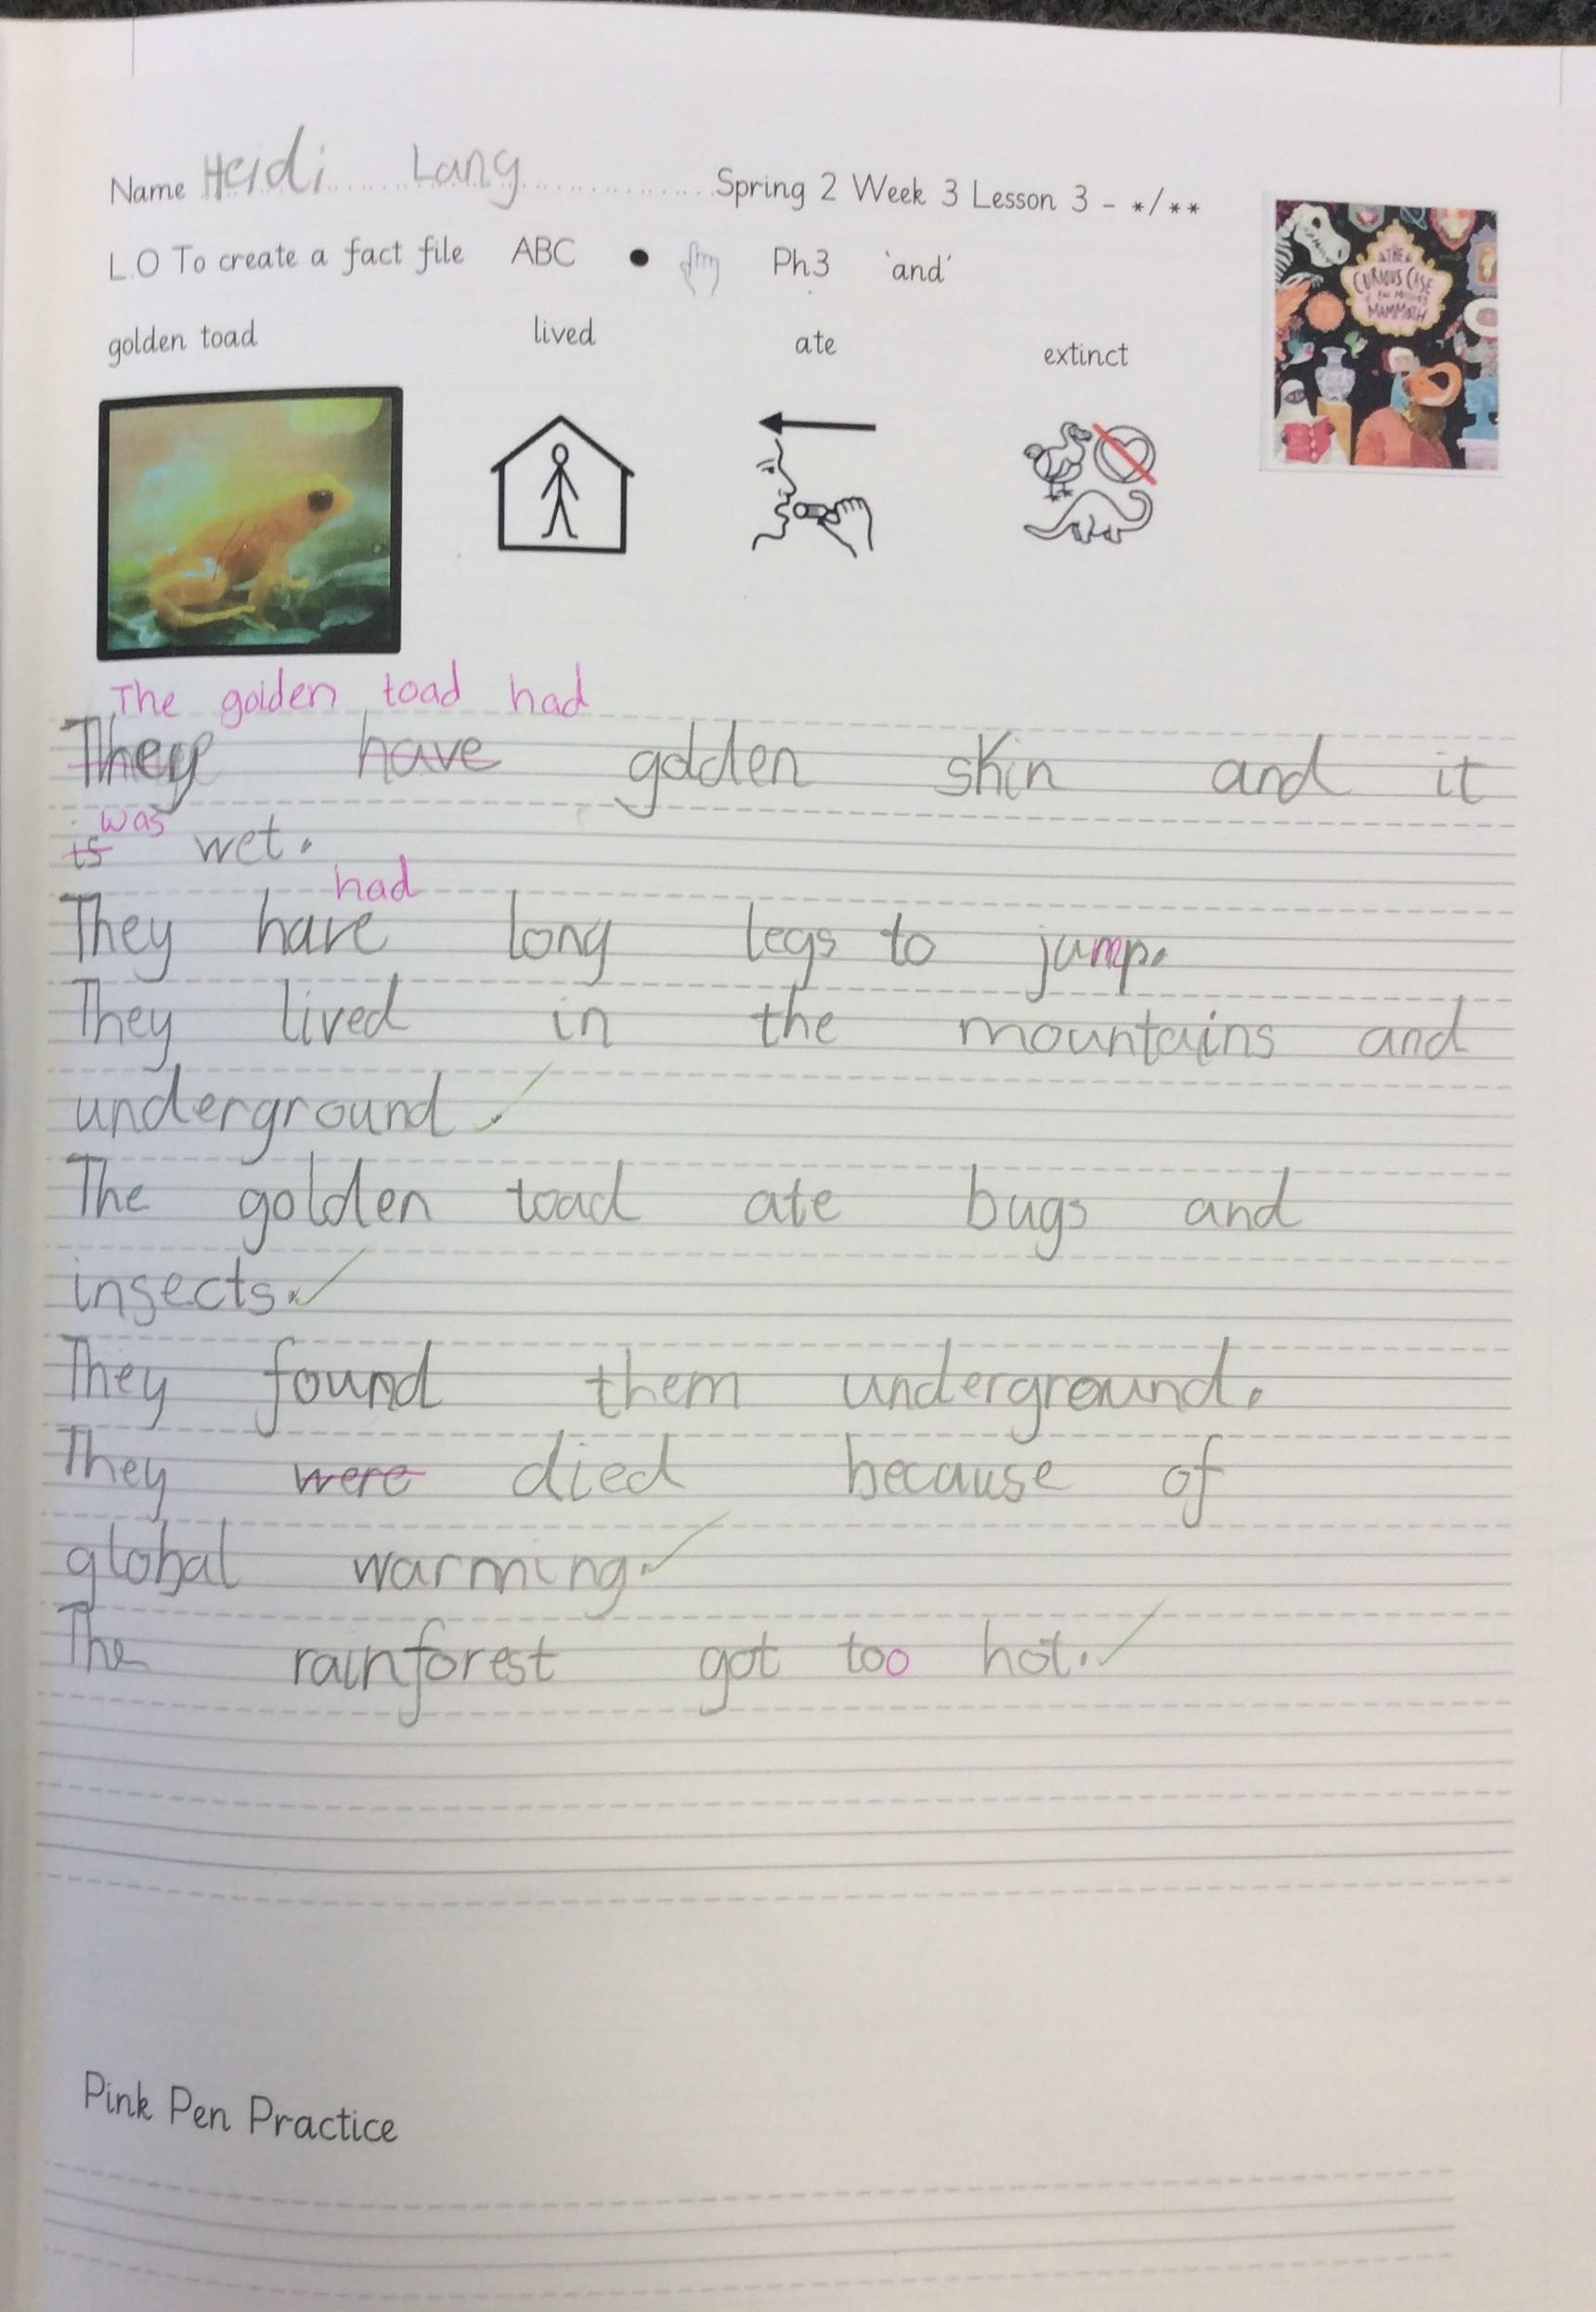 Name Heidi Lang Spring 2 Week 3 Lesson 3 - */**
L.O To create a fact file ABC Ph3 'and'
THE CURIOUS CASE OF THE MISSING MAMMOTH
golden toad lived ate extinct
The golden toad had
They have golden skin and it
was
is wet.
had
They have long legs to jump.
They lived in the mountains and
underground.
The golden toad ate bugs and
insects.
They found them underground.
They were died because of
global warming.
The rainforest got too hot.
Pink Pen Practice